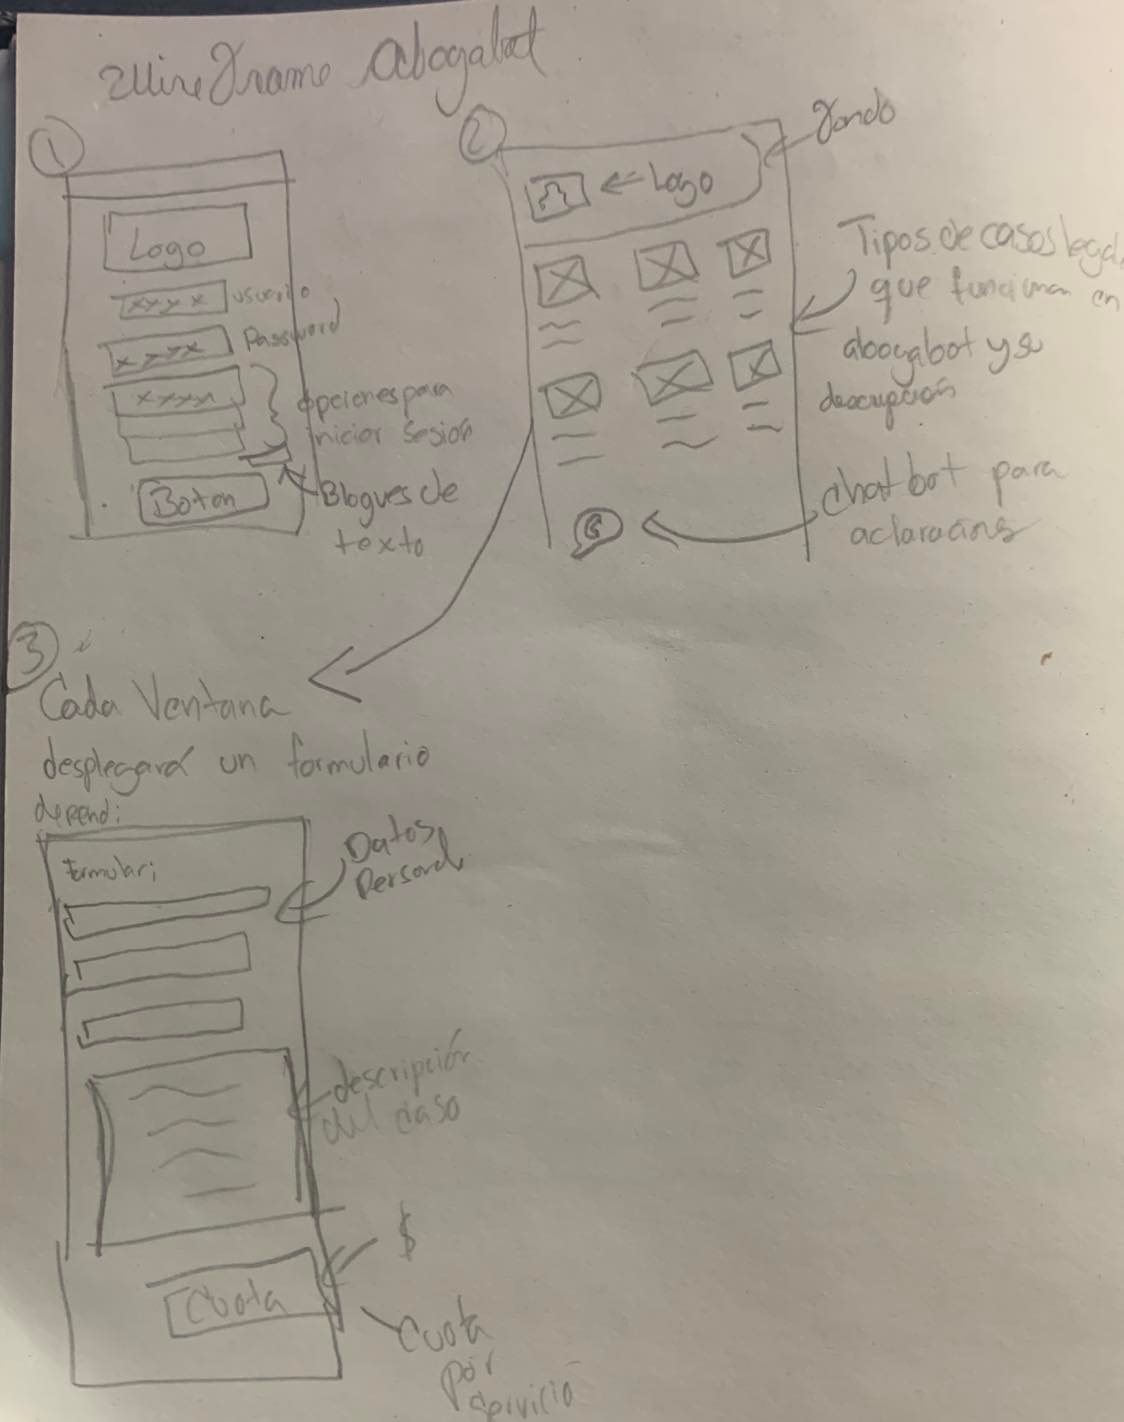 Wireframe Abogabot
1
Logo
xxxx usuario
xxxx Password
xxxx
opciones para
iniciar sesión
Boton
Bloques de
texto
2
Fondo
Logo
Tipos de casos legal
que funcionan en
abogabot y su
descripción
chatbot para
aclaracions
3
Cada Ventana
desplegará un formulario
depend:
formulari
Datos
Personal
descripción
del caso
$
Cuota
Cuota
por
servicio